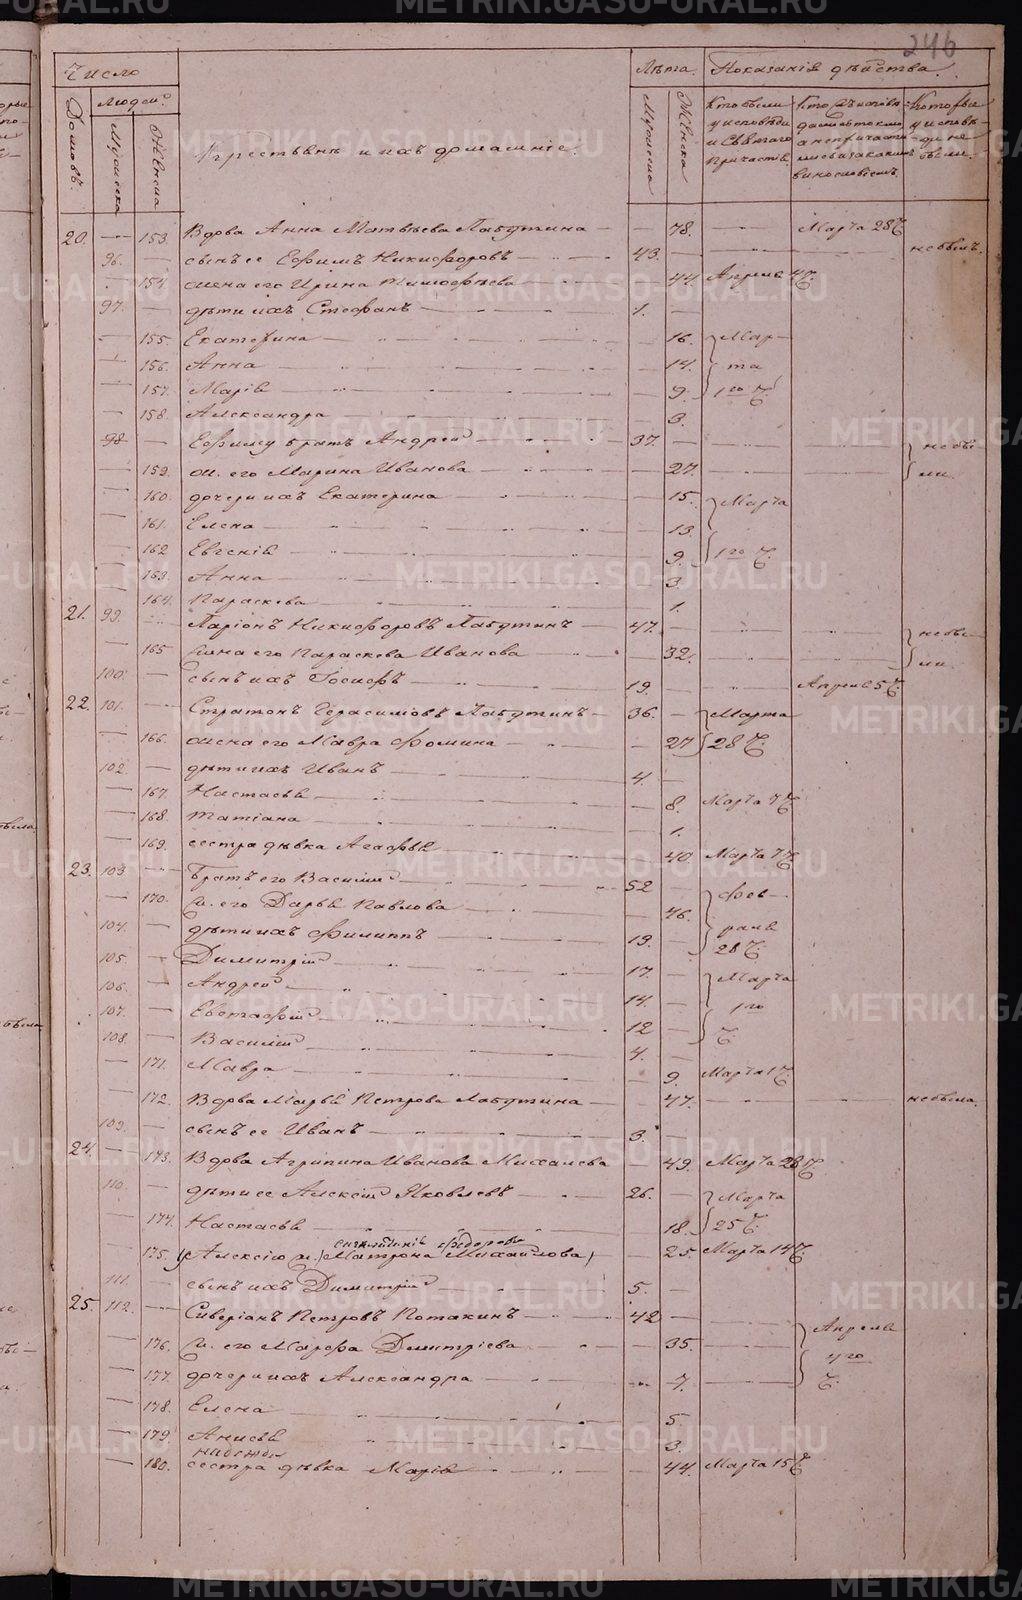 246
Число
Лѣта. Показанія дѣйства.
Домовъ. людей. Мужеска Женска
Крестьянъ и ихъ домашніе.
Мужеска Женска
Кто были у исповѣди и Святаго Причастія.
Кто исповѣдался токмо а непричастился и за какимъ винословіемъ.
Которые у исповѣди не были.
20. — 153. Вдова Анна Матвѣева Лабутина — 78. — Марта 28 Ч.
96. — сынъ ее Ефимъ Никифоровъ 43. — небылъ.
154. жена его Ирина Тимофѣева 44. Апрѣля 4 Ч.
97. — дѣти ихъ Стефанъ 1. —
— 155. Екатерина — 16. Мар-
— 156. Анна — 14. та
— 157. Марія — 9. 1го Ч.
— 158. Александра — 3.
98 — Ефиму братъ Андрей 37. — небы-
— 159. ж. его Марина Иванова — 27. ли.
— 160. дочери ихъ Екатерина — 15. Марта
— 161. Елена — 13.
— 162 Евгенія — 9. 1го Ч.
— 163. Анна — 3.
— 164. Параскева — 1.
21. 99. Ларіонъ Никифоровъ Лабутинъ — 47. — небы-
— 165 жена его Параскева Иванова — 32. ли.
100. — сынъ ихъ Іосифъ 19. — Апрѣля 5 Ч.
22. 101. — Стратонъ Герасимовъ Лабутинъ — 36. — Марта
— 166. жена его Мавра Фомина — 27 28 Ч.
102. — дѣти ихъ Иванъ 4. —
— 167. Настасья — 8. Марта 7 Ч.
— 168. Татіана — 1.
— 169. сестра дѣвка Агафья — 40. Марта 7 Ч.
23. 103 — Братъ его Василій 52 — Фев-
— 170. ж. его Дарья Павлова — 46. раля
104. — дѣти ихъ Филиппъ 19. — 28 Ч.
105. — Димитрій 17. — Марта
106. — Андрей 14. — 1го
107. — Евстафій 12 — Ч.
108. — Василій 4. —
— 171. Мавра — 9. Марта 1 Ч.
— 172. Вдова Марья Петрова Лабутина — 47. — небыла.
109. — сынъ ее Иванъ 3.
24. — 173. Вдова Агрипина Иванова Михалева — 49. Марта 28 Ч.
110. — дѣти ее Алексій Яковлевъ 26. — Марта
— 174. Настасья — 18. 25 Ч.
Федорова
175. (Алексію ж.) Матрона Михайлова) — 25. Марта 14 Ч.
111. — сынъ ихъ Димитрій 5. —
25. 112. — Сиверіанъ Петровъ Потакинъ 42 — Апрѣля
— 176. ж. его Марфа Димитріева — 35. 4го
— 177. дочери ихъ Александра — 7. Ч.
— 178. Елена — 5.
— 179 Анисья — 3.
Надежда
— 180. сестра дѣвка Марія — 44. Марта 15 Ч.
METRIKI.GASO-URAL.RU